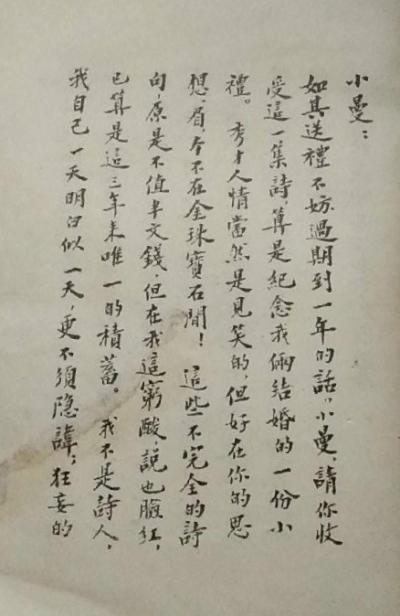 小曼：
如其送禮不妨過期到一年的話，小曼，請你收
受這一集詩，算是紀念我倆結婚的一份小
禮。秀才人情當然是見笑的，但好在你的思
想，眉，本不在金珠寶石間！這些不完全的詩
句，原是不值半文錢，但在我這窮酸，說也臉紅，
已算是這三年來唯一的積蓄。我不是詩人，
我自己一天明白似一天，更不須隱諱；狂妄的